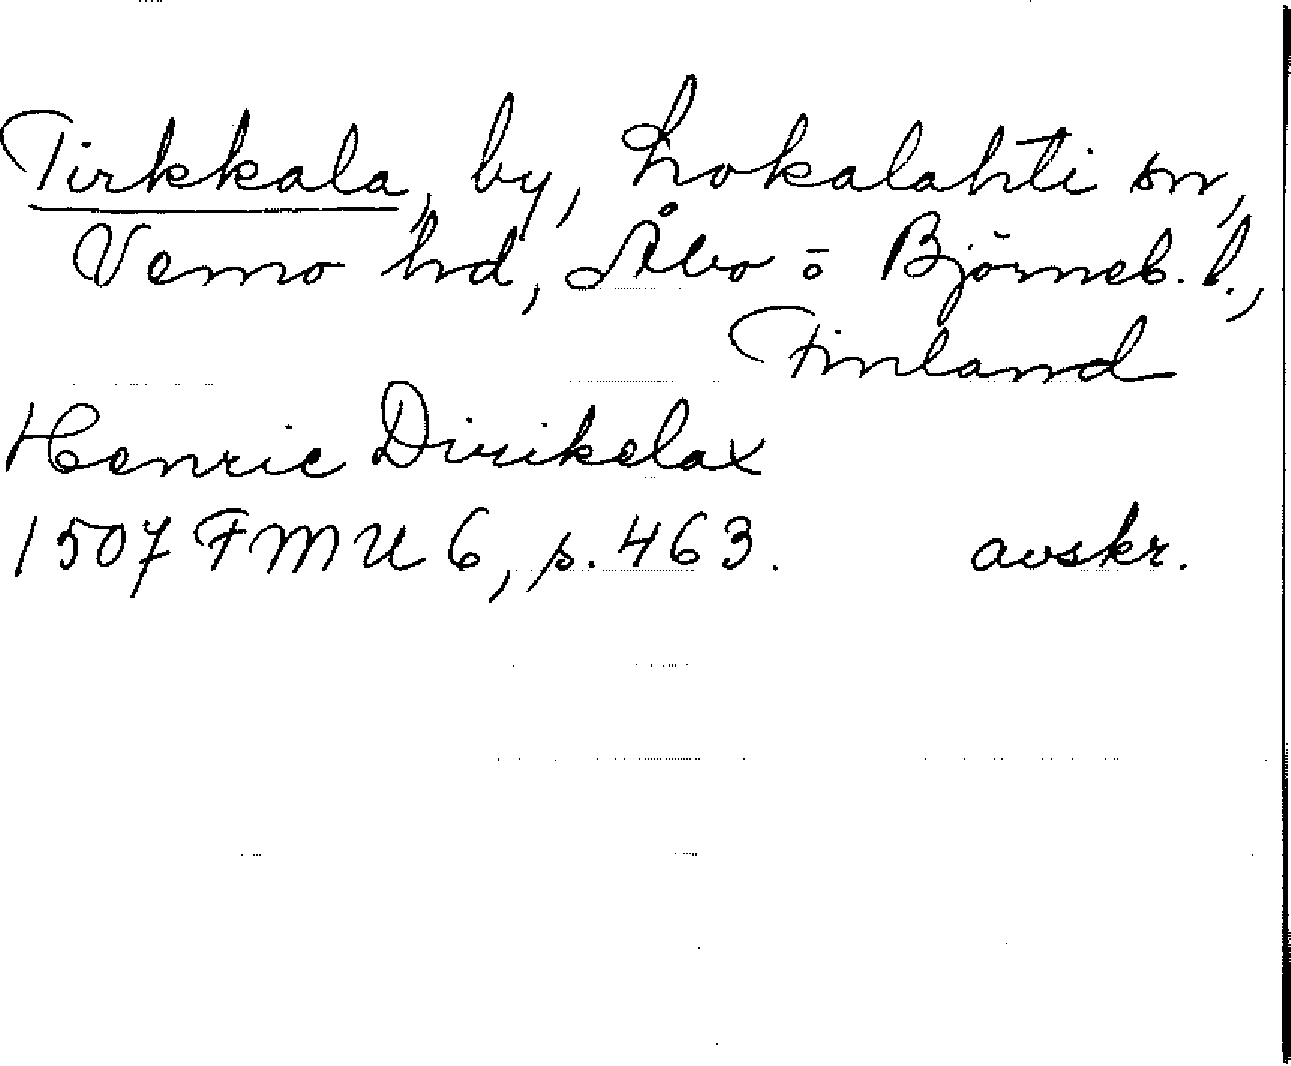 Tirkkala, by, Lokalahti sn,
Vemo hd, Åbo o Björneb. l.,
Finland
Henric Dirikelax
1507 FMU 6, p. 463. avskr.